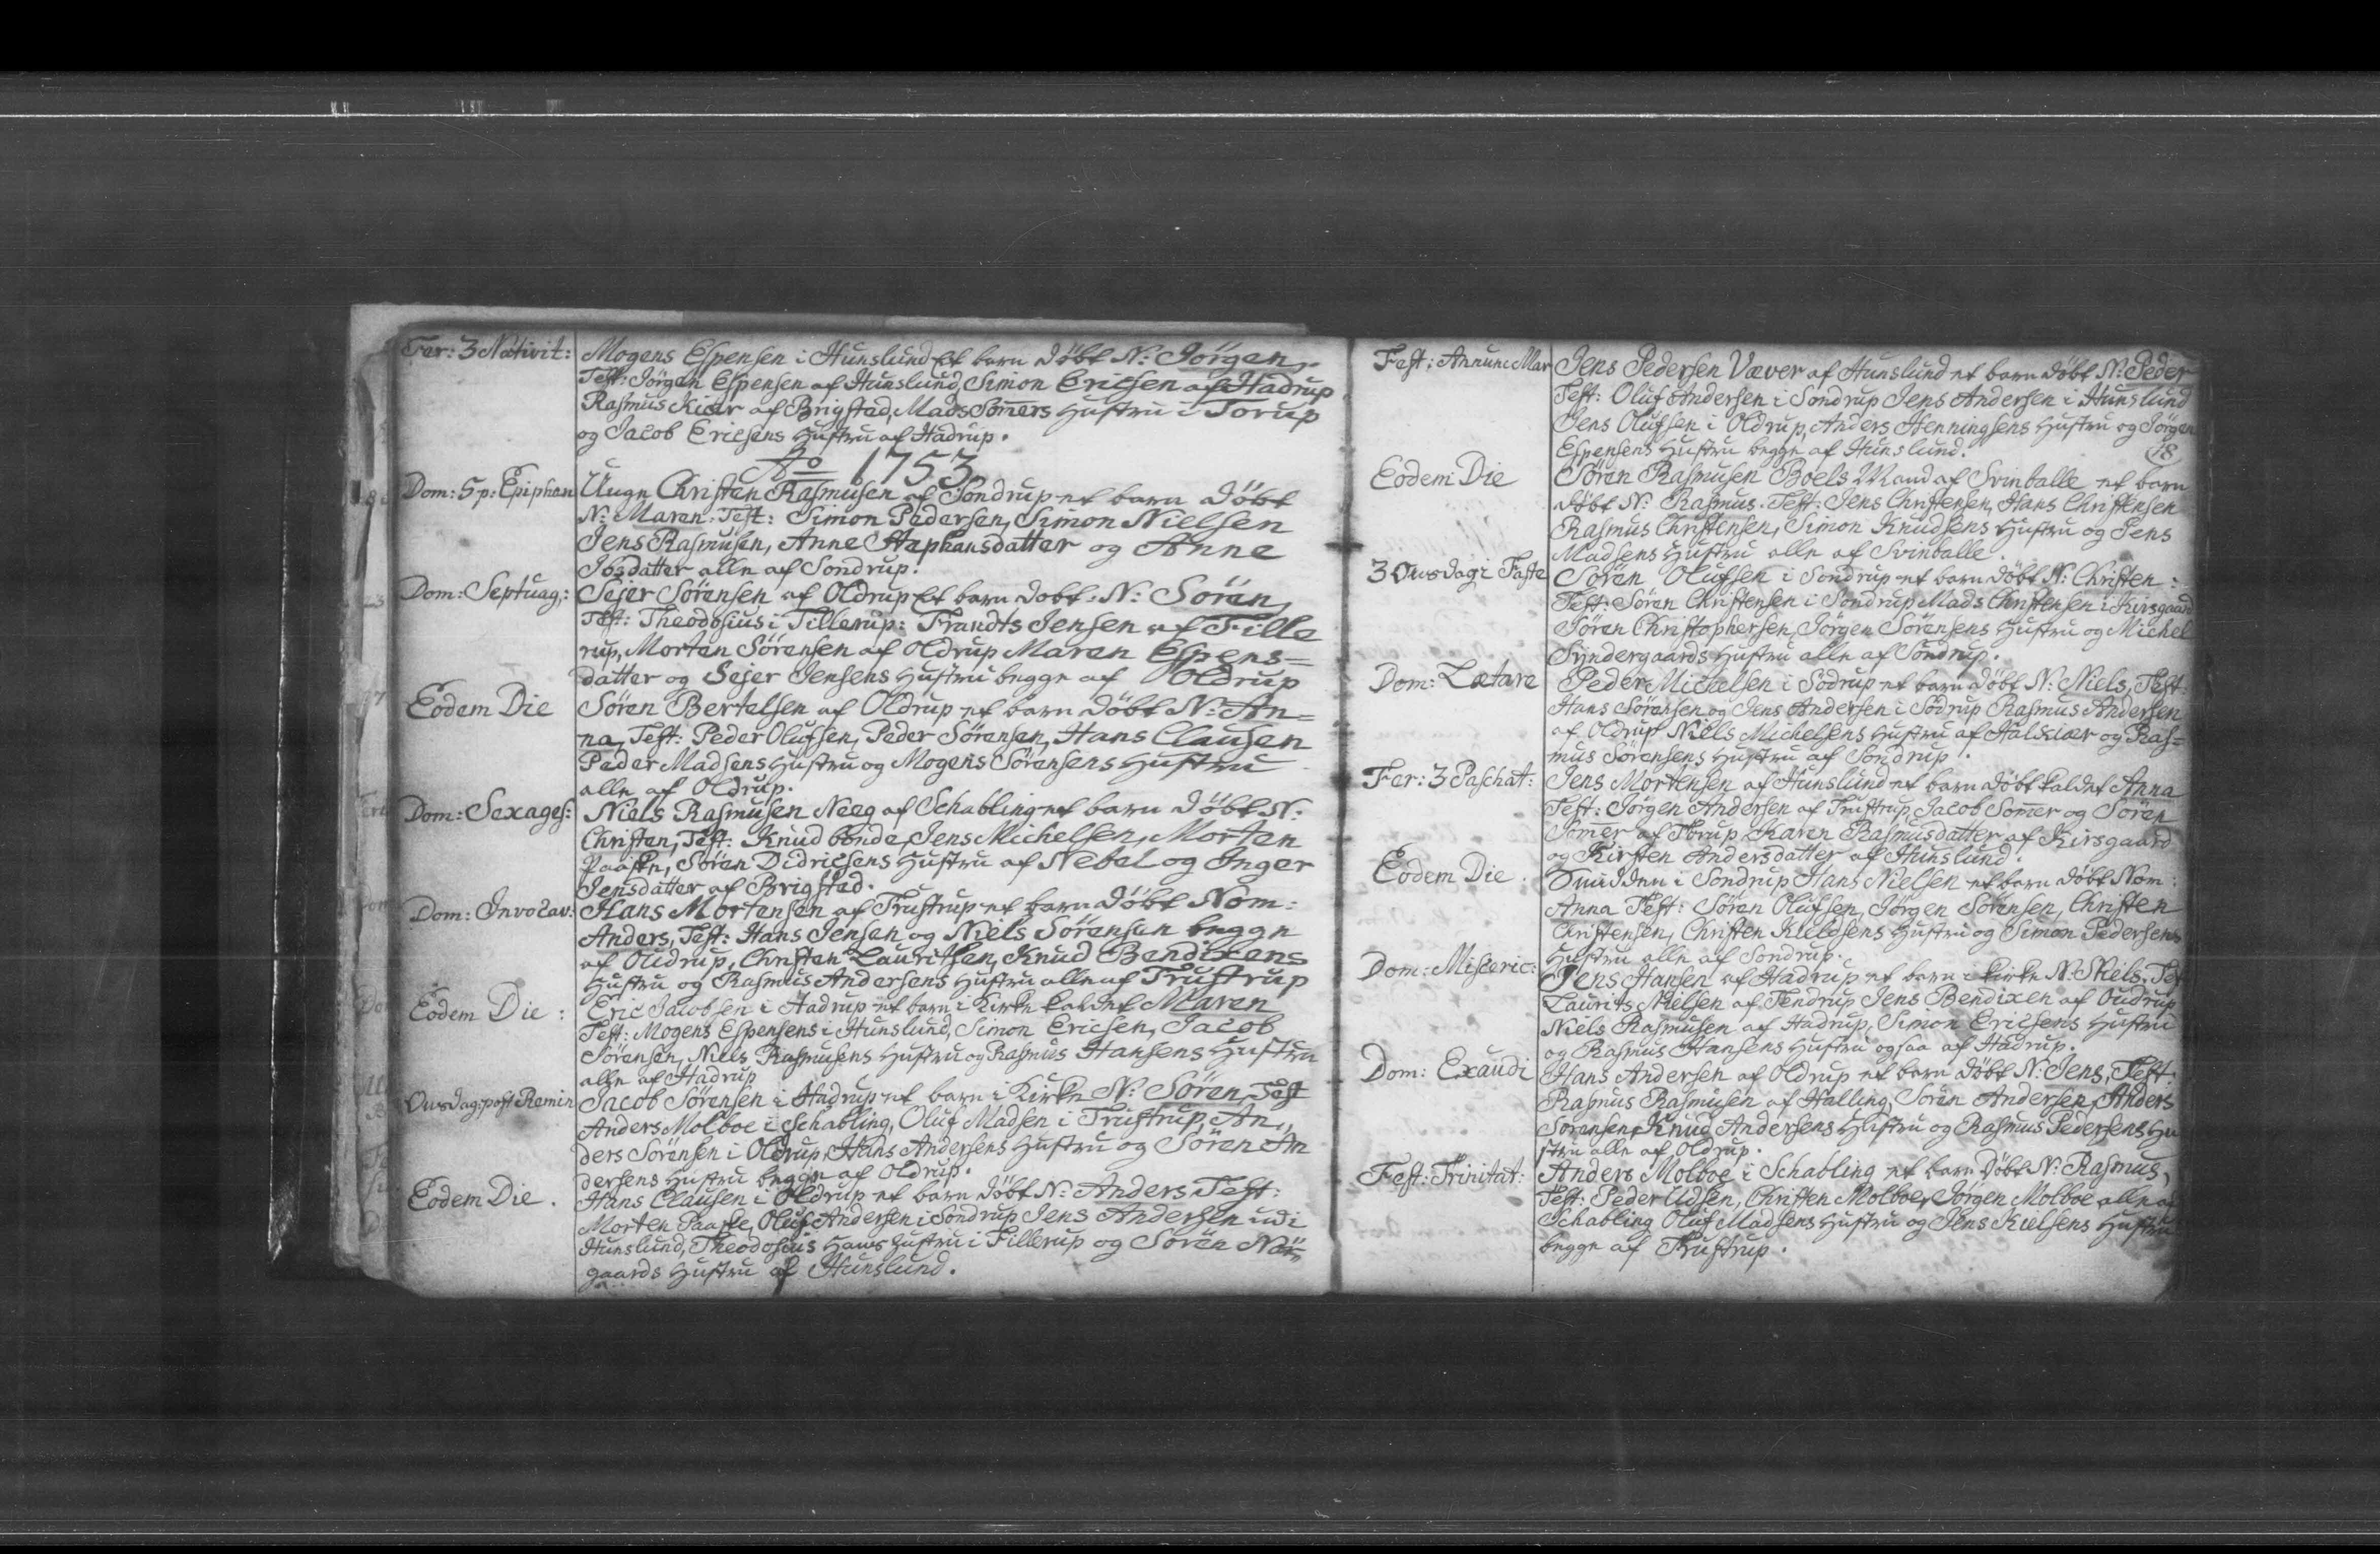 Fer: 3 Nativit: Mogens Espensen i Hunslund Et barn døbt N: Jørgen,
Test: Jørgen Espensen af Hunslund, Simon Ericsen af Hadrup
Rasmus Kiær af Brigsted, Mads Somers Hustru i Torup
og Jacob Ericsens Hustru af Hadrup.
Ao 1753
Dom: 5 p: Epiphan Ungn Christen Rasmusen af Sondrup et barn døbt
N: Maren. Test: Simon Pedersen, Simon Nielsen
Jens Rasmusen, Anne Staphansdatter og Anne
Ibsdatter alle af Sondrup.
Dom: Septuag: Sejer Sørensen af Oldrup Et barn døbt. N: Søren,
Test: Theodosius i Fillerup: Frandts Jensen af Fille
rup, Morten Sørensen af Oldrup Maren Espens=
datter og Sejer Jensens Hustru begge af Oldrup
Eodem Die Søren Bertelsen af Oldrup et barn døbt N: An=
na, Test: Peder Olufsen, Peder Sørensen, Hans Clausen
Peder Madsens Hustru og Mogens Sørensens Hustru
alle af Oldrup.
Dom: Sexages: Niels Rasmusen Neeg af Schabling et barn døbt N:
Christen, Test: Knud bonde, Jens Michelsen, Morten
Paaske, Søren Didricsens Hustru af Nebel og Inger
Jensdatter af Brigsted.
Dom: Invocav: Hans Mortensen af Trustrup et barn døbt Nom:
Anders, Test: Hans Jensen og Niels Sørensen begge
af Oudrup, Christen Lauritsen, Knud Bendixens
Hustru og Rasmus Andersens Hustru alle af Trustrup
Eodem Die: Eric Jacobsen i Hadrup et barn i Kirke kaldet Maren
Test: Mogens Espensens i Hunslund, Simon Ericsen, Jacob
Sørensen, Niels Rasmusens Hustru og Rasmus Hansens Hustru
alle af Hadrup
Onsdag: post Remin Jacob Sørensen i Hadrup et barn i Kirke N: Søren, Test
Anders Molboe i Schabling, Oluf Madsen i Trustrup, An,,
ders Sørensen i Oldrup, Hans Andersens Hustru og Søren An
dersens Hustru begge af Oldrup.
Eodem Die. Hans Clausen i Oldrup et barn døbt N: Anders Test:
Morten Paaske, Oluf Andersen i Sondrup Jens Andersen udi
Hunslund, Theodosius Hans Hustru i Fillerup og Søren Nør=
gaards Hustru af Hunslund.
Fest: Annunc Mar Jens Pedersen Væver af Hunslund et barn døbt N: Peder
Test: Oluf Andersen i Sondrup Jens Andersen i Hunslund
Jens Olufsen i Oldrup, Anders Henningsens Hustru og Jørgen
Espensens Hustru begge af Hunslund. 18
Eodem Die Søren Rasmusen Boels Mand af Svinballe et barn
døbt N: Rasmus. Test: Jens Christensen, Hans Christensen
Rasmus Christensen, Simon Knudsens Hustru og Jens
Madsens Hustru alle af Svinballe.
3 Onsdag i Faste Søren Olufsen i Sondrup et barn døbt N: Christen:
Test: Søren Christensen i Sondrup Mads Christensen i Kirsgaard
Søren Christophersen, Jørgen Sørensens Hustru og Michel
Syndergaards Hustru alle af Sondrup.
Dom: Lætare Peder Michelsen i Sodrup et barn døbt N: Niels, Test:
Hans Sørensen og Jens Andersen i Södrup Rasmus Andersen
af Oldrup Niels Michelsens Hustru af Halskær og Ras=
mus Sørensens Hustru af Sondrup.
Fer: 3 Paschat: Jens Mortensen af Hunslund et barn døbt kaldet Anna
Test: Jørgen Andersen af Trustrup, Jacob Somer og Søren
Somer af Torup, Karen Rasmusdatter af Kirsgaard
og Kirsten Andersdatter af Hunslund.
Eodem Die. Smidden i Sondrup Hans Nielsen et barn døbt Nom:
Anna Test: Søren Olufsen, Jørgen Sørensen, Christen
Christensen, Christen Kieldsens Hustru og Simon Pedersens
Hustru alle af Sondrup.
Dom: Misceric: Jens Hansen af Hadrup et barn i kirke N: Niels, Tes
Laurits Nielsen af Tendrup Jens Bendixen af Oudrup
Niels Rasmusen af Hadrup, Simon Ericsens Hustru
og Rasmus Hansens Hustru ogsaa af Hadrup.
Dom: Exaudi Hans Andersen af Oldrup et barn døbt N: Jens, Test:
Rasmus Rasmusen af Halling, Søren Andersen, Anders
Sørensen, Knud Andersens Hustru og Rasmus Pedersens Hu
stru alle af Oldrup.
Fest: Trinitat: Anders Molboe i Schabling et barn døbt N: Rasmus,
Test: Peder Udsen, Christen Molboe, Jørgen Molboe alle af
Schabling Oluf Madsens Hustru og Jens Kielsens Hustru
begge af Trustrup.